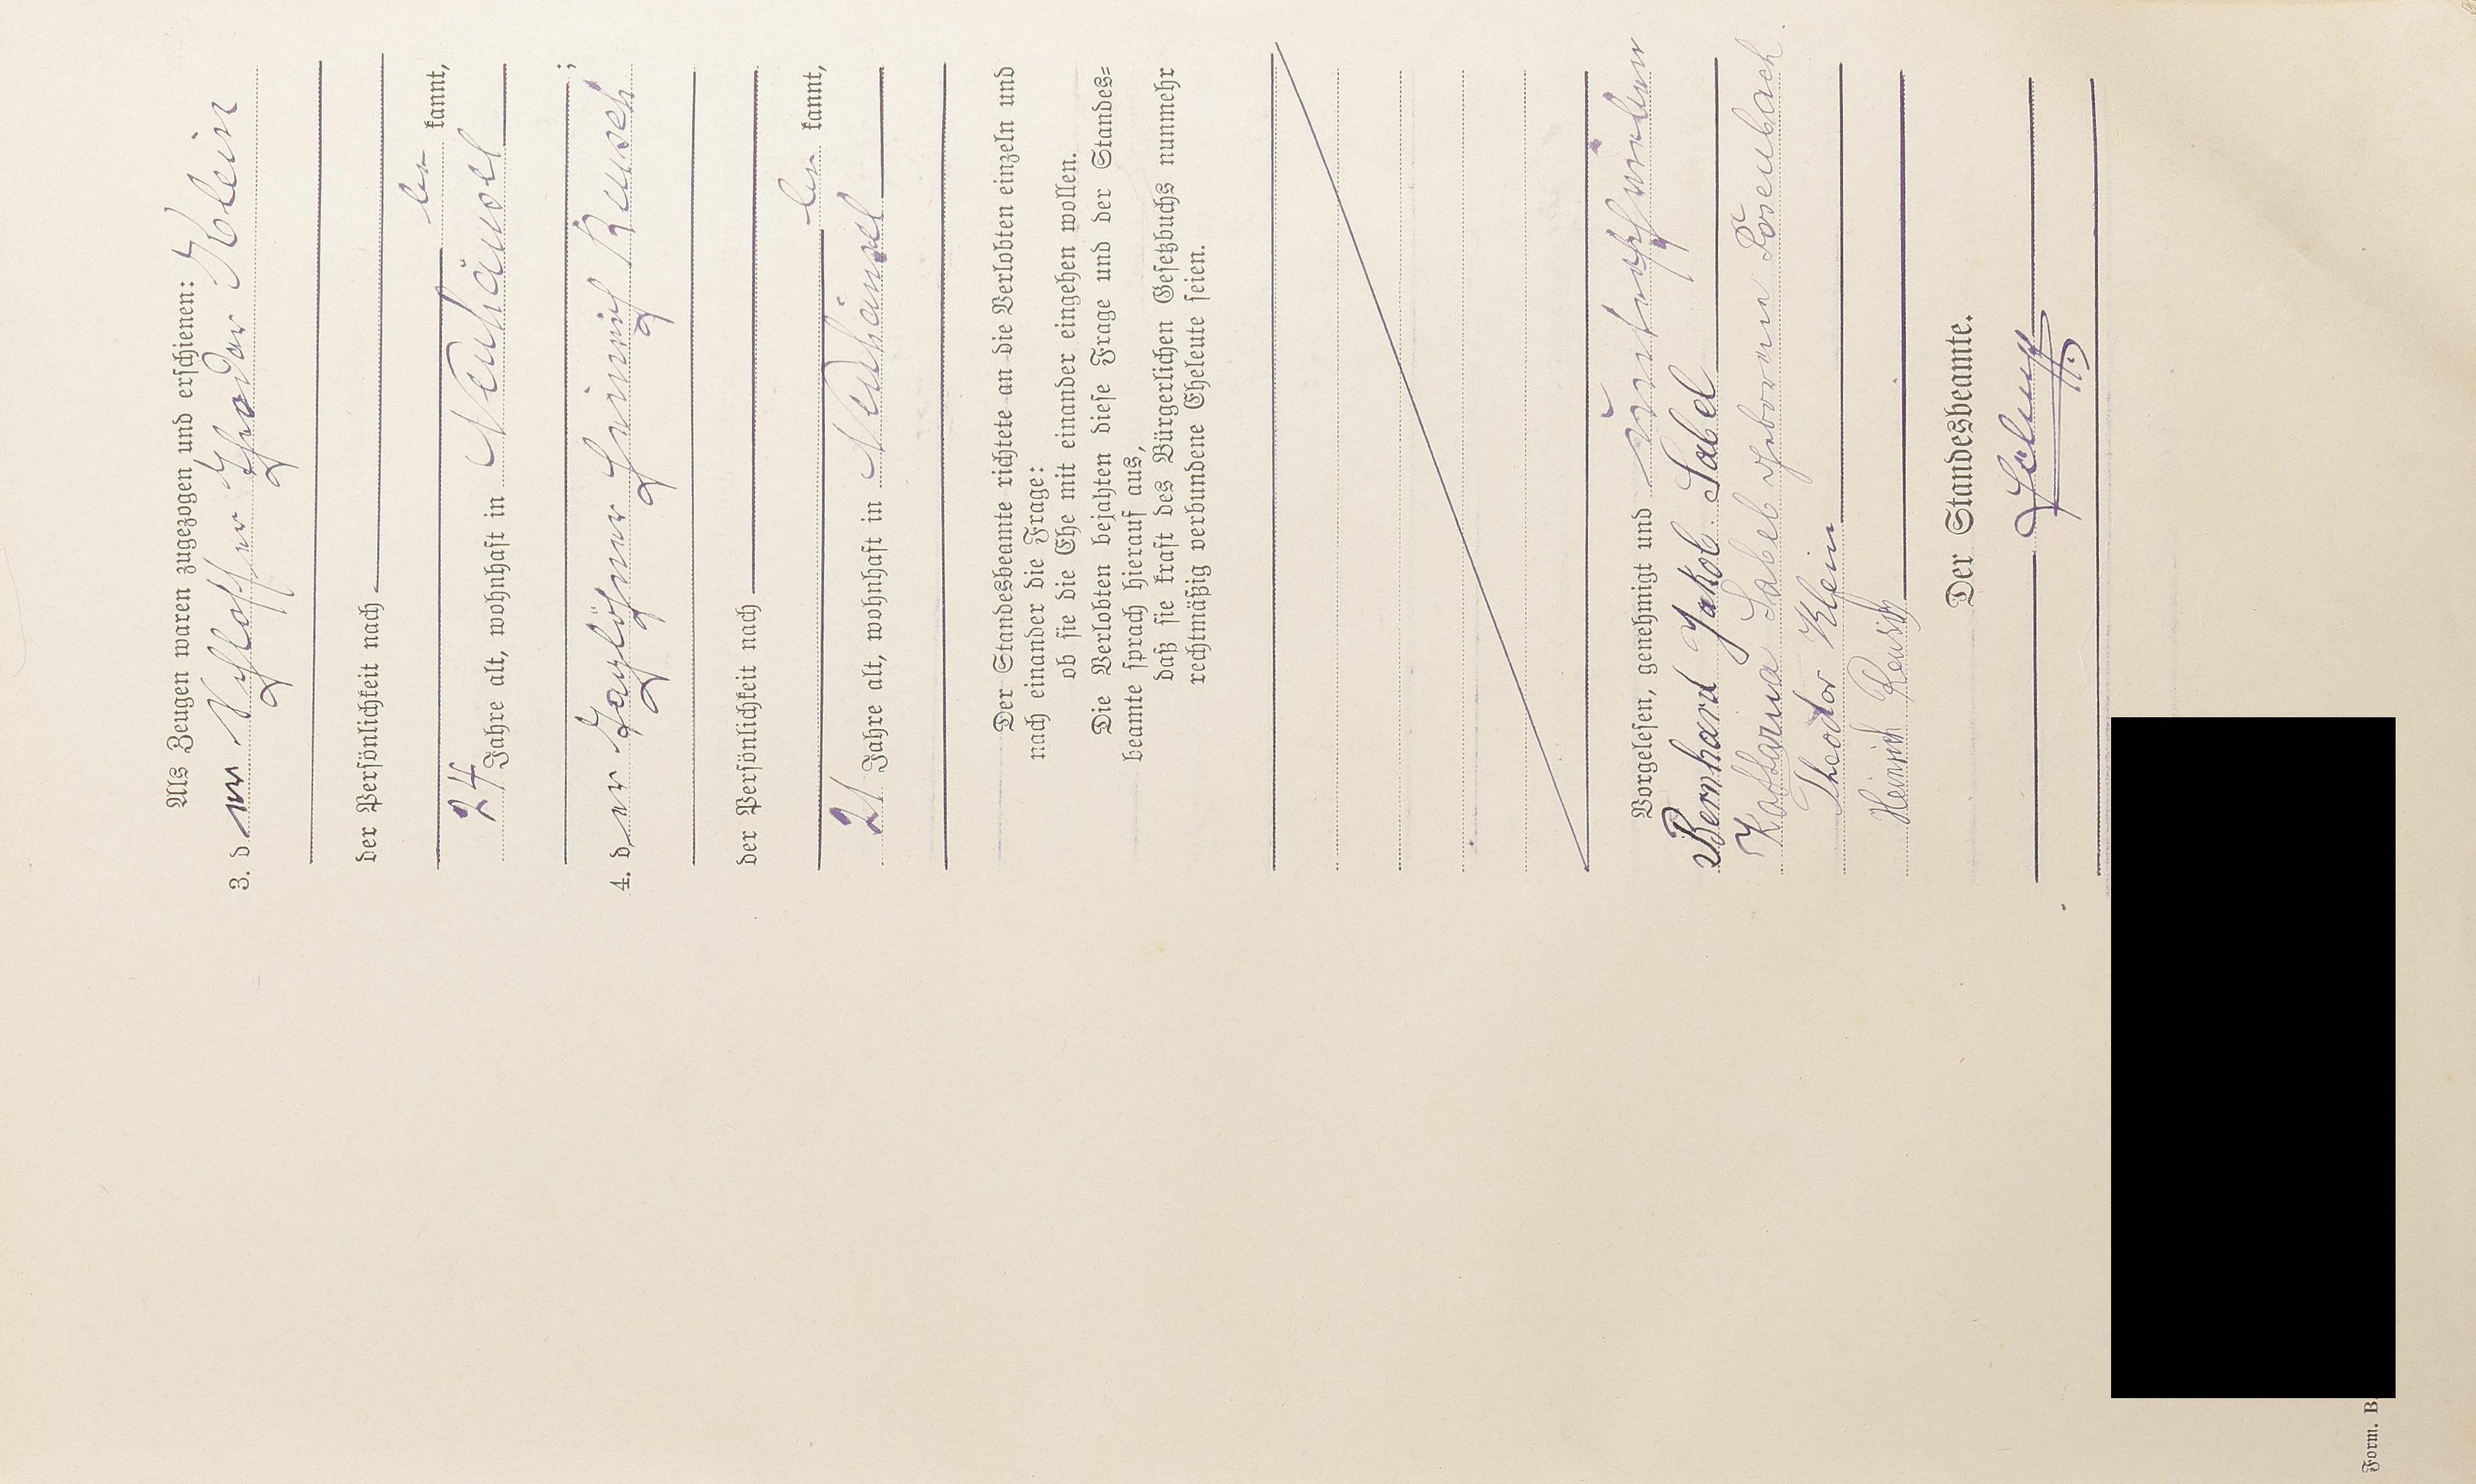 Als Zeugen waren zugezogen und erschienen:
3. der Schlosser Theodor Klein
der Persönlichkeit nach
be kannt,
24 Jahre alt, wohnhaft in Neuhäusel
;
4. der Taglöhner Heinrich Reusch
der Persönlichkeit nach
be kannt,
21 Jahre alt, wohnhaft in Neuhäusel
Der Standesbeamte richtete an die Verlobten einzeln und
nach einander die Frage:
ob sie die Ehe mit einander eingehen wollen.
Die Verlobten bejahten diese Frage und der Standes=
beamte sprach hierauf aus,
daß sie kraft des Bürgerlichen Gesetzbuchs nunmehr
rechtmäßig verbundene Eheleute seien.
Vorgelesen, genehmigt und unterschrieben
Bernhard Jakob Sabel
Katharina Sabel geborene Rosenbach.
Theodor Klein
Heinrich Reusch
Der Standesbeamte.
Form. B.